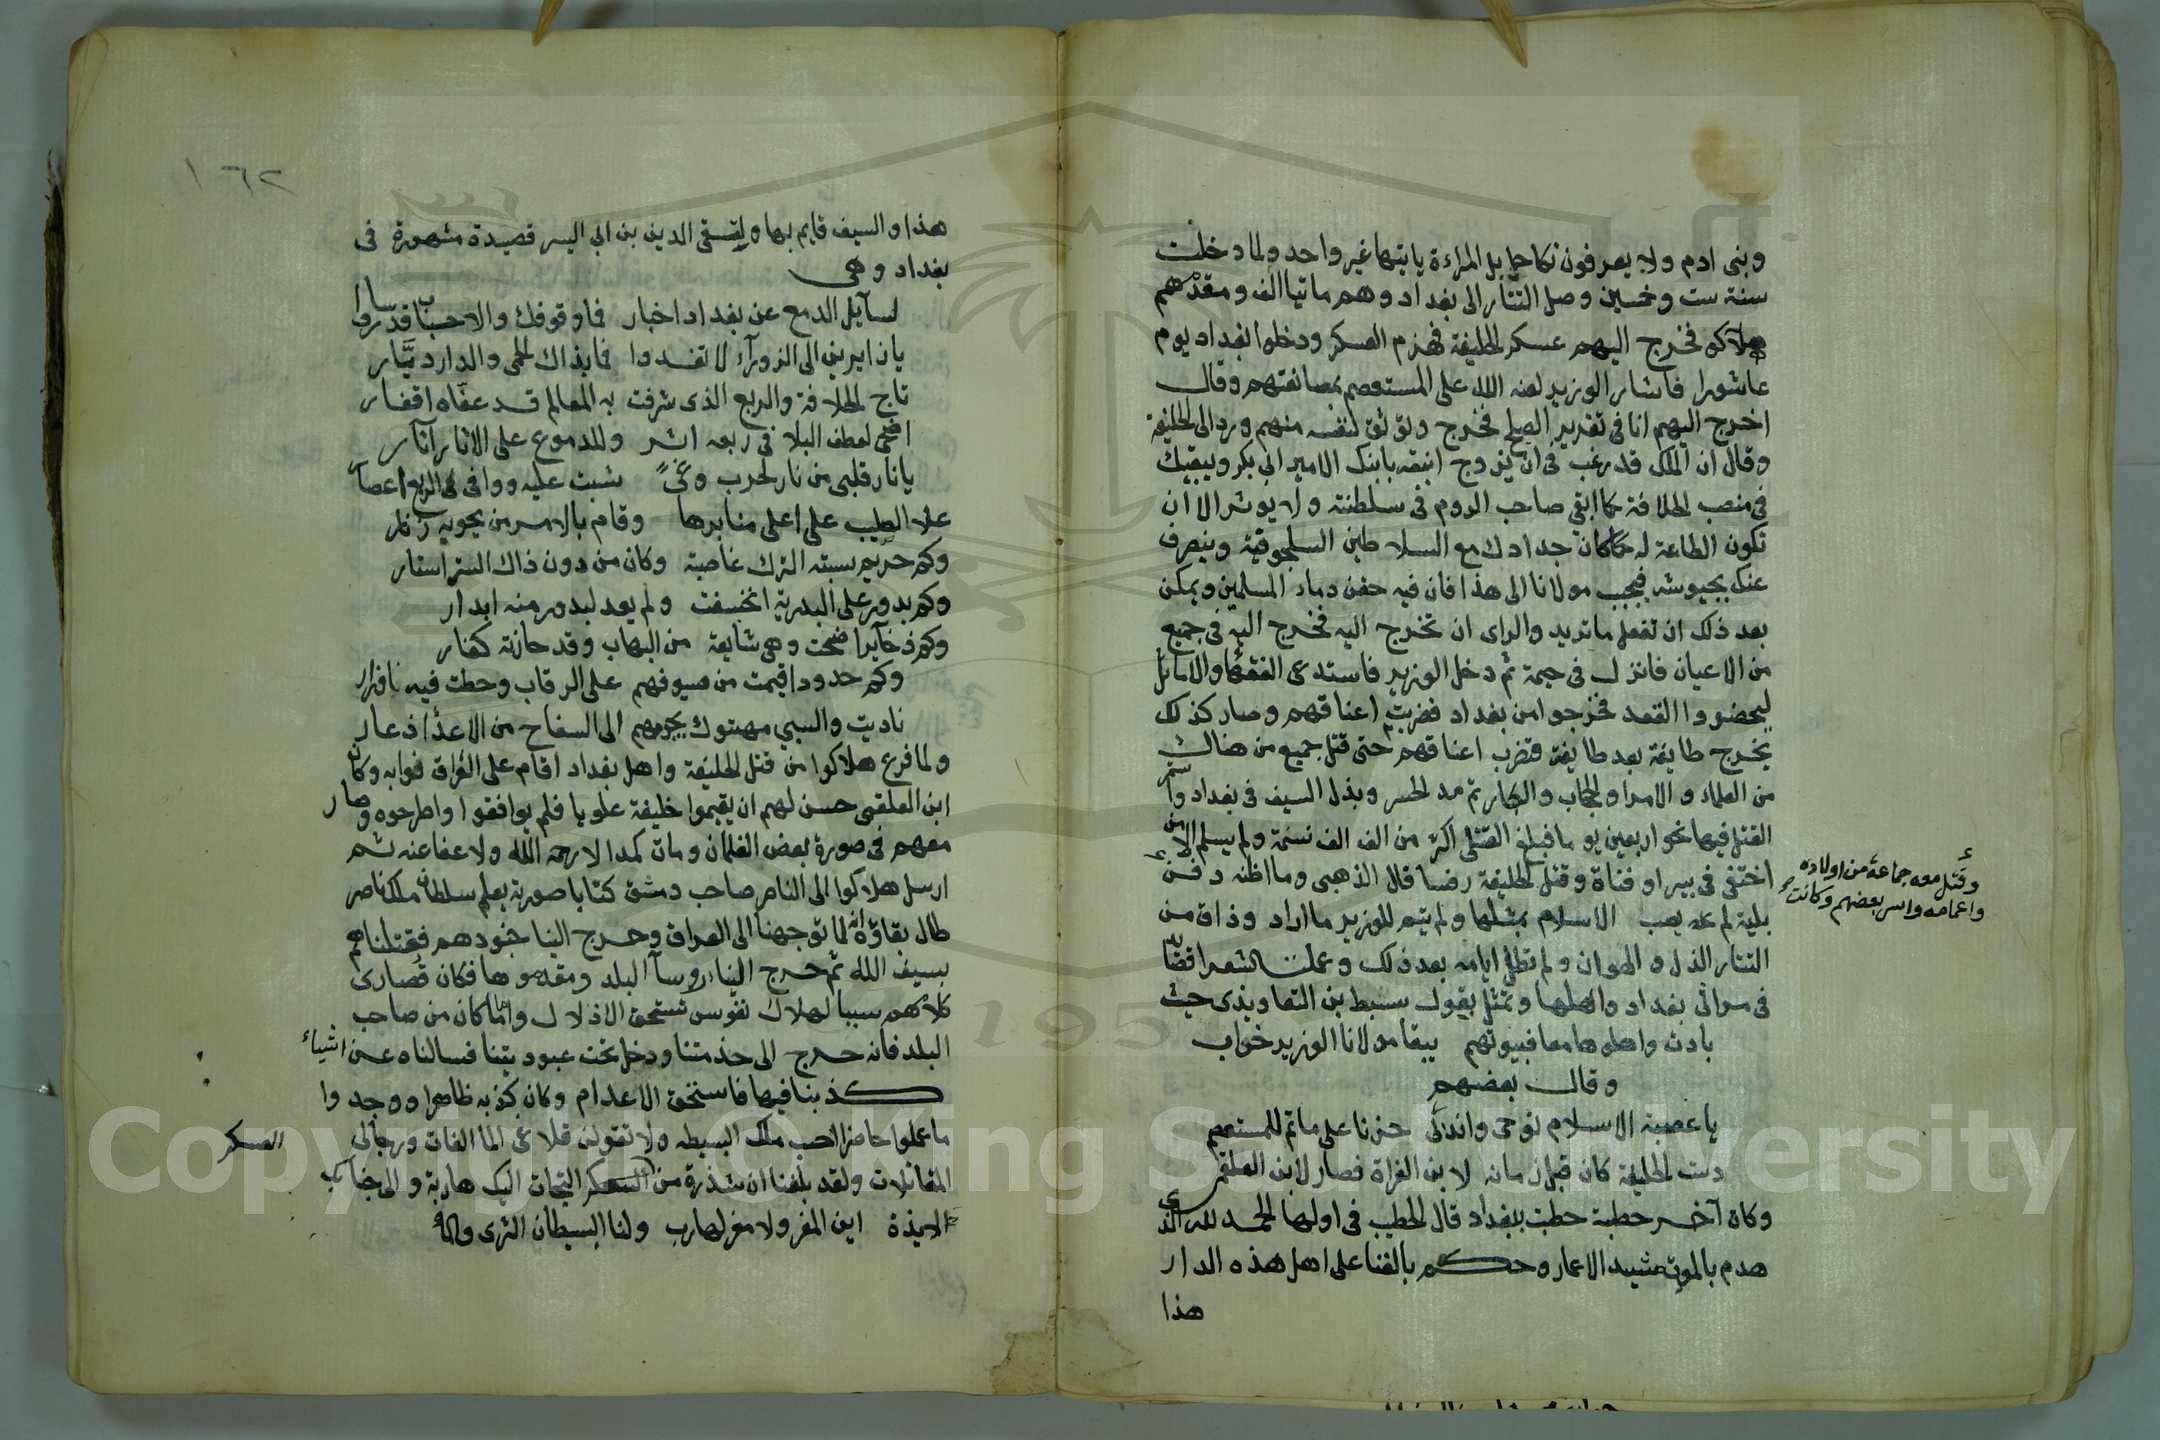 وبنى ادم ولا يعرفون نكاحا بل المراءة ياتيها غير واحد ولما دخلت
سنة ست وخمسين وصل التتار الى بغداد وهم ماتيا الف ومقدمهم
هلاكو فخرج اليهم عسكر الخليفة فهزم العسكر ودخلوا بغداد يوم
عاشورا فاشار الوزير لعنه الله على المستعصم بمصانعتهم وقال
اخرج اليهم انا فى تقرير الصلح فخرج وتوثق لنفسه منهم ورد الى الخليفة
وقال ان الملك قد رغب فى ان يزوج ابنته بابنك الامير ابى بكر ويبقيك
فى منصب الخلافة كما ابقى صاحب الروم فى سلطنته ولا يوثر الا ان
تكون الطاعة له كما كان جدادك مع السلاطين السلجوقية وينصرف
عنك بجيوشه فيجيب مولانا الى هذا فان فيه حقن دماء المسلمين ويمكن
بعد ذلك ان تفعل ما تريد والراى ان تخرج اليه فخرج اليه فى جميع
من الاعيان فانزل فى خيمة ثم دخل الوزير فاستدعى الفقها والاماثل
ليحضروا القعد فخرجوا من بغداد فضربت اعناقهم وصار كذلك
يخرج طايفة بعد طايفة فتضرب اعناقهم حتى قتل جميع من هناك
من العلماء والامرا والحجاب والكبار ثم مد الجسر وبذل السيف فى بغداد واستمر
القتل فيها نحو اربعين يوما فبلغ القتلى اكثر من الف الف نسمة ولم يسلم الا من
اختفى فى بير او قناة وقتل الخليفة رفسا قال الذهبى وما اظنه دفن
وقتل معه جماعة من اولاده
واعمامه واسر بعضهم وكانت
بلية لم يصب الاسلام بمثلها ولم يتم للوزير ما اراد وذاق من
التتار الذل والهوان ولم تطل ايامه بعد ذلك وعملت الشعرا قصايد
فى مراثى بغداد واهلها وتمثل بقول سبط بن التعاويذى حيث
بادت واهلوها معا فبيوتهم ببقا مولانا الوزير خراب
وقال بعضهم
يا عصبة الاسلام نوحى واندبى حزنا على ماتم للمستعصم
دست الخليفة كان قبل زمانه لابن الفراة فصار لابن العلقمى
وكان آخر خطبة خطبت ببغداد قال الخطيب فى اولها الحمد لله الذى
هدم بالموت مشيد الاعمار وحكم بالفنا على اهل هذه الدار
هذا
١٦٢
هذا والسيف قايم بها ولتقى الدين بن ابى اليسر قصيدة مشهورة فى
بغداد وهى
لسآيل الدمع عن بغداد اخبار فما وقوفك والاحباب قد ساروا
يا زايرين الى الزورآء لا تفدوا فما بذاك الحمى والدار ديَّار
تاج الخلافة والربع الذى شرفت به المعالم قد عفّاه اقفار
اضحى لعطف البلا فى ربعه اثر وللدموع على الاثار آثار
يا نار قلبى من نار لحرب وغىً شبت عليه ووافى الربع اعصار
علا الصليب على اعلى منابرها وقام بالامر من يحويه زنار
وكم حريم سبته الترك غاصبة وكان من دون ذاك الستر استار
وكم بدور على البدرية انخسفت ولم يعد لبدور منه ابدار
وكم ذخآير اضحت وهى شايعة من النهاب وقد حازته كفار
وكم حدود اقيمت من سيوفهم على الرقاب وحطت فيه
ناديت والسبي مهتوك يجرهم الى السفاح من الاعدا ذعار
ولما فرغ هلاكوا من قتل الخليفة واهل بغداد اقام على العراق نوابه وكان
ابن العلقمى حسن لهم ان يقيموا خليفة علويا فلم يوافقوا واطرحوه وصار
معهم فى صورة بعض الغلمان ومات كمدا لا رحمه الله ولا عفا عنه ثم
ارسل هلاكوا الى الناصر صاحب دمشق كتابا صورته يعلم سلطان ملك ناصر
طال بقاؤه انه لما توجهنا الى العراق وخرج الينا جنودهم فقتلناهم
بسيف الله ثم خرج الينا روسآ البلد ومقدموها فكان قصارى
كلامهم سببا لهلاك نفوس تستحق الاذلال واما كان من صاحب
البلد فانه خرج الى خدمتنا ودخل تحت عبوديتنا فسالناه عن اشياء
كذبنا فيها فاستحق الاعدام وكان كذبه ظاهرا ووجدوا
ما عملوا حاضرا اجب ملك البسيطه ولا تقولن قلاعى المانعات ورجالى
المقاتلات ولقد بلغنا ان شذرة من العسكر التجات اليك هاربة والى جنابك
العسكر
لايذة اين المفر ولا مفر لهارب ولنا البسيطان الثرى والمآ